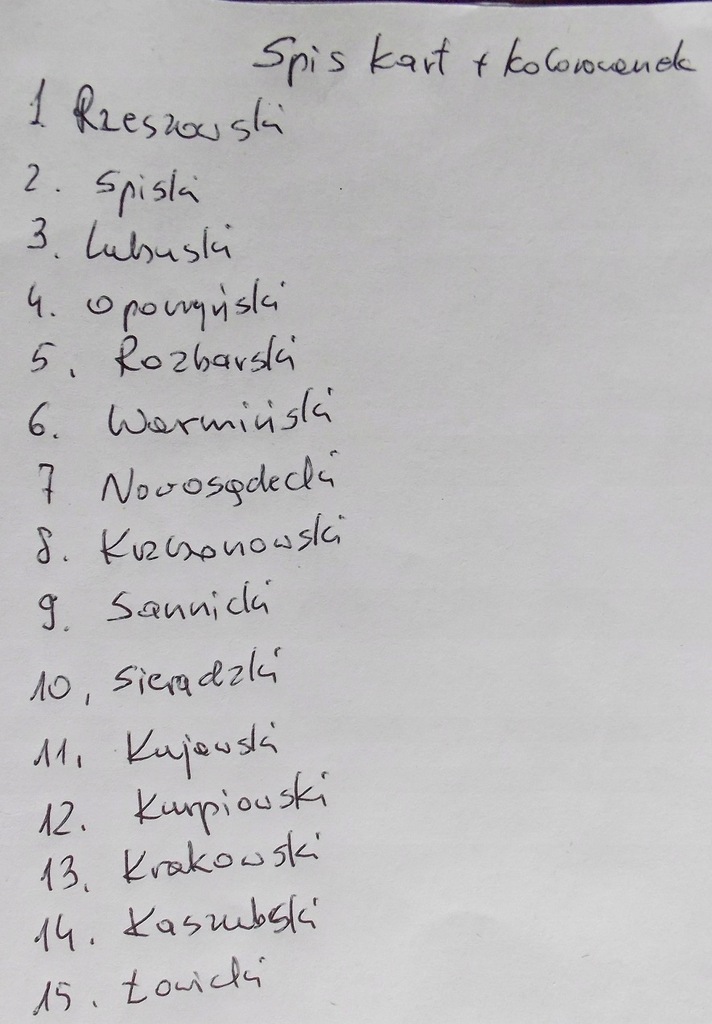 Spis kart + kolorowanek
1 Rzeszowski
2. Spiski
3. Lubuski
4. Opoczyński
5. Rozbarski
6. Warmiński
7 Nowosądecki
8. Krzczonowski
9. Sannicki
10, Sieradzki
11, Kujawski
12. Kurpiowski
13, Krakowski
14. Kaszubski
15. Łowicki